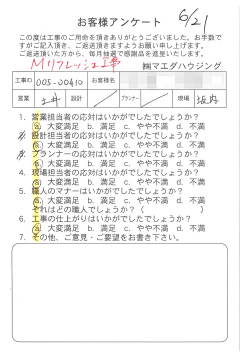 お客様アンケート 6/21
この度は工事のご用命を頂きありがとうございました。お手数で
すがご記入頂き、ご返送頂きますようお願い申し上げます。
ご返送頂いた方から、毎月抽選で感謝品を進呈いたします。
Mリフレッシュ工事 ㈱マエダハウジング
工事ID 005-00410 お客様名
営業 土井 設計 プランナー 現場 坂内
1. 営業担当者の応対はいかがでしたでしょうか?
a. 大変満足 b. 満足 c. やや不満 d. 不満
2. 設計担当者の応対はいかがでしたでしょうか?
a. 大変満足 b. 満足 c. やや不満 d. 不満
3. プランナーの応対はいかがでしたでしょうか?
a. 大変満足 b. 満足 c. やや不満 d. 不満
4. 現場担当者の応対はいかがでしたでしょうか?
a. 大変満足 b. 満足 c. やや不満 d. 不満
5. 職人のマナーはいかがでしたでしょうか?
a. 大変満足 b. 満足 c. やや不満 d. 不満
それはどの職人でしょうか?( )
6. 工事の仕上がりはいかがでしたでしょうか?
a. 大変満足 b. 満足 c. やや不満 d. 不満
7. その他、ご意見・ご要望をお書き下さい。